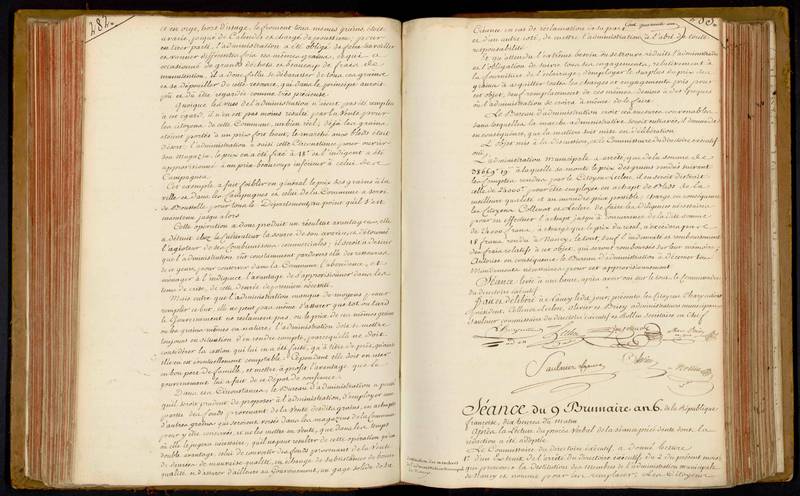 282.
et en ouge, hors d'usage, le froment tous menus grains étoit
occasionné de grands déchets et beaucoup de frais de
manutention, il a donc fallu se débarasser de tous ces grains
et se dépouiller de cette réserve, qui dans le principe auroit
pû et dû être regardée comme très précieuse.
Quoique les vues de l'administration n'aient pas été remplies
à cet égard, il n'en est pas moins résulté par la Vente pour
les citoyens de cette Commune, un bien réel; déjà les grains
étoient portés à un prix fort haut, le marché aux bleds étoit
désert. l'administration a saisi cette Circonstance pour ouvrir
son Magazin, le prix en a été fixé à 18# et l'indigent a été
approvisionné à un prix beaucoup inférieur à celui de la
Campagne.
Cet exemple a fait baisser en général le prix des grains à la
ville et dans les Campagnes et celui de la Commune a servi
de Boussole pour tout le Département, au point qu'il s'est
maintenu jusqu'alors
Cette opération a donc produit un résultat avantageux, elle
a détruit chez le Cultivateur la source de son avarice, et détourné
l'agioteur de ses Combinaisons commerciales; il seroit à désirer
que l'administration eût constamment par devers elle des ressources
de ce genre, pour entretenir dans la Commune l'abondance, et
ménager à l'indigence l'avantage de s'approvisionner dans les
tems de crise, de cette denrée de première nécessité.
Mais outre que l'administration manque de moyens pour
remplir ce but, elle ne peut pas même s'assurer que tôt ou tard
le Gouvernement ne réclamera pas, ou le prix de ces mêmes grains
ou les grains mêmes en nature; l'administration doit se mettre
toujours en situation d'en rendre compte, parce qu'elle ne doit
considérer la cession qui lui en a été faite, qu'à titre de prêt, qu'ainsi
elle en est éventuellement comptable. Cependant elle doit en user
en bon père de famille, et mettre à profit l'avantage que le
gouvernement lui a fait de ce dépôt de confiance.
Dans ces Circonstances, le Bureau d'administration a pensé
qu'il seroit prudent de proposer à l'administration, d'employer une
partie des fonds provenant de la Vente desdits grains, en achapts
d'autres grains qui seroient versés dans les magazins de la Commune
pour y être conservés, et ne les mettre en Vente, que dans les tems
où elle le jugera nécessaire, qu'il ne peut résulter de cette opération qu'un
double avantage, celui de convertir des fonds provenant de la Vente
de denrées de mauvaise qualité, en échange de substances de bonne
qualité, et d'assurer d'ailleurs au Gouvernement, un gage solide de la
283.
Créance en cas de réclamation de sa part
et d'un autre côté, de mettre l'administration à l'abri de toute
responsabilité.
Et qu'attendu l'extrême besoin où se trouve réduite l'administration
en l'obligation de suivre tous ses engagements, relativement à
la fourniture de l'éclairage, d'employer le surplus du prix des
grains à acquitter toutes les charges et engagements pris pour
cet objet, sauf remplacement de ces mêmes deniers à des époques
où l'administration se croira à même de le faire.
Le Bureau d'administration croit ces mesures convenables
en conséquence, que la motion soit mise en délibération.
L'objet mis à la discution, et le Commissaire du directoire exécutif
ouï;
L'administration Municipale a arrêté, que de la somme de
38669# 19s à laquelle se monte le prix des grains vendus suivant
les Comptes rendus par le Citoyen Leclerc, il en seroit distrait
celle de 24000# pour être employée en achapt de Bled de la
meilleure qualité et au moindre prix possible; charge en conséquence
les Citoyens Collenot et Leclerc de faire les diligences nécessaires
pour en effectuer l'achapt jusqu'à concurrence de la dite somme
de 24000 francs, à charge que le prix du resal, n'excédera pas
18 francs rendu à Nancy, le tout sauf l'indemnité et remboursement
des frais relatifs à cet objet, qui seront remboursés sur leur mémoire;
Autorise en conséquence le Bureau d'administration à décerner tous
Mandements nécessaires pour cet approvisionnement.
Séance levée à une heure, après avoir ouï sur le tout, le Commissaire
du directoire exécutif.
Fait et délibéré à Nancy lesdits jour; présents les Citoyens
président, Collenot, Leclerc,
Saulnier commissaire du directoire exécutif et Rollin secrétaire en Chef
Saulnier
Rollin
Séance du 9 Brumaire an 6. de la République
françoise, dix heures du matin
Après la Lecture du procès Verbal de la Séance précédente dont la
rédaction a été adoptée
Le Commissaire du directoire exécutif a donné lecture
1° d'un Extrait de l'arrêté du directoire exécutif du 2 du présent mois,
qui prononce la destitution des Membres de l'administration municipale
de Nancy et nomme pour les remplacer, Les Citoyens